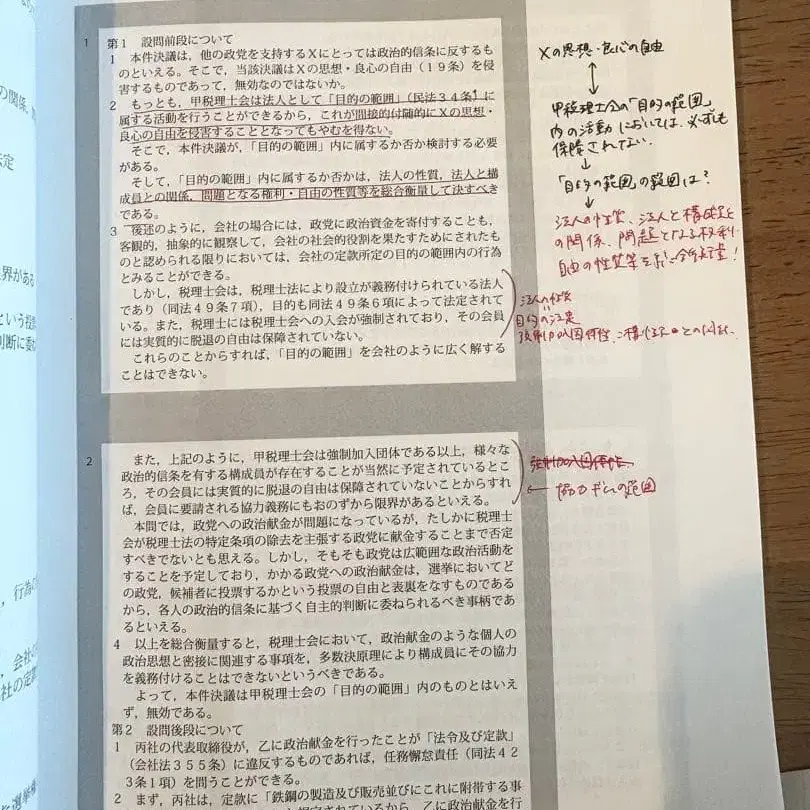 1
第1 設問前段について
1 本件決議は,他の政党を支持するXにとっては政治的信条に反するも
のといえる。そこで,当該決議はXの思想・良心の自由(19条)を侵
害するものであって,無効なのではないか。
2 もっとも,甲税理士会は法人として「目的の範囲」(民法34条)に
属する活動を行うことができるから,これが間接的付随的にXの思想・
良心の自由を侵害することとなってもやむを得ない。
そこで,本件決議が,「目的の範囲」内に属するか否か検討する必要
がある。
そして,「目的の範囲」内に属するか否かは,法人の性質,法人と構
成員との関係,問題となる権利・自由の性質等を総合衡量して決すべき
である。
3 後述のように,会社の場合には,政党に政治資金を寄付することも,
客観的,抽象的に観察して,会社の社会的役割を果たすためにされたも
のと認められる限りにおいては,会社の定款所定の目的の範囲内の行為
とみることができる。
しかし,税理士会は,税理士法により設立が義務付けられている法人
であり(同法49条7項),目的も同法49条6項によって法定されて
いる。また,税理士には税理士会への入会が強制されており,その会員
には実質的に脱退の自由は保障されていない。
これらのことからすれば,「目的の範囲」を会社のように広く解する
ことはできない。
2
また,上記のように,甲税理士会は強制加入団体である以上,様々な
政治的信条を有する構成員が存在することが当然に予定されているとこ
ろ,その会員には実質的に脱退の自由は保障されていないことからすれ
ば,会員に要請される協力義務にもおのずから限界があるといえる。
本問では,政党への政治献金が問題になっているが,たしかに税理士
会が税理士法の特定条項の除去を主張する政党に献金することまで否定
すべきでないとも思える。しかし,そもそも政党は広範囲な政治活動を
することを予定しており,かかる政党への政治献金は,選挙においてど
の政党,候補者に投票するかという投票の自由と表裏をなすものである
から,各人の政治的信条に基づく自主的判断に委ねられるべき事柄であ
るといえる。
4 以上を総合衡量すると,税理士会において,政治献金のような個人の
政治思想と密接に関連する事項を,多数決原理により構成員にその協力
を義務付けることはできないというべきである。
よって,本件決議は甲税理士会の「目的の範囲」内のものとはいえ
ず,無効である。
第2 設問後段について
1 丙社の代表取締役が,乙に政治献金を行ったことが「法令及び定款」
(会社法355条)に違反するものであれば,任務懈怠責任(同法42
3条1項)を問うことができる。
2 まず,丙社は,定款に「鉄鋼の製造及び販売並びにこれに附帯する事
乙に政治献金を行
Xの思想・良心の自由
甲税理士会の「目的の範囲」
内の活動においては、必ずしも
保障されない。
「目的の範囲」の範囲は?
法人の性質、法人と構成員と
の関係、問題となる権利・
自由の性質等を総合衡量!
法人の性質
目的の法定
強制加入団体性
協力ギムの範囲